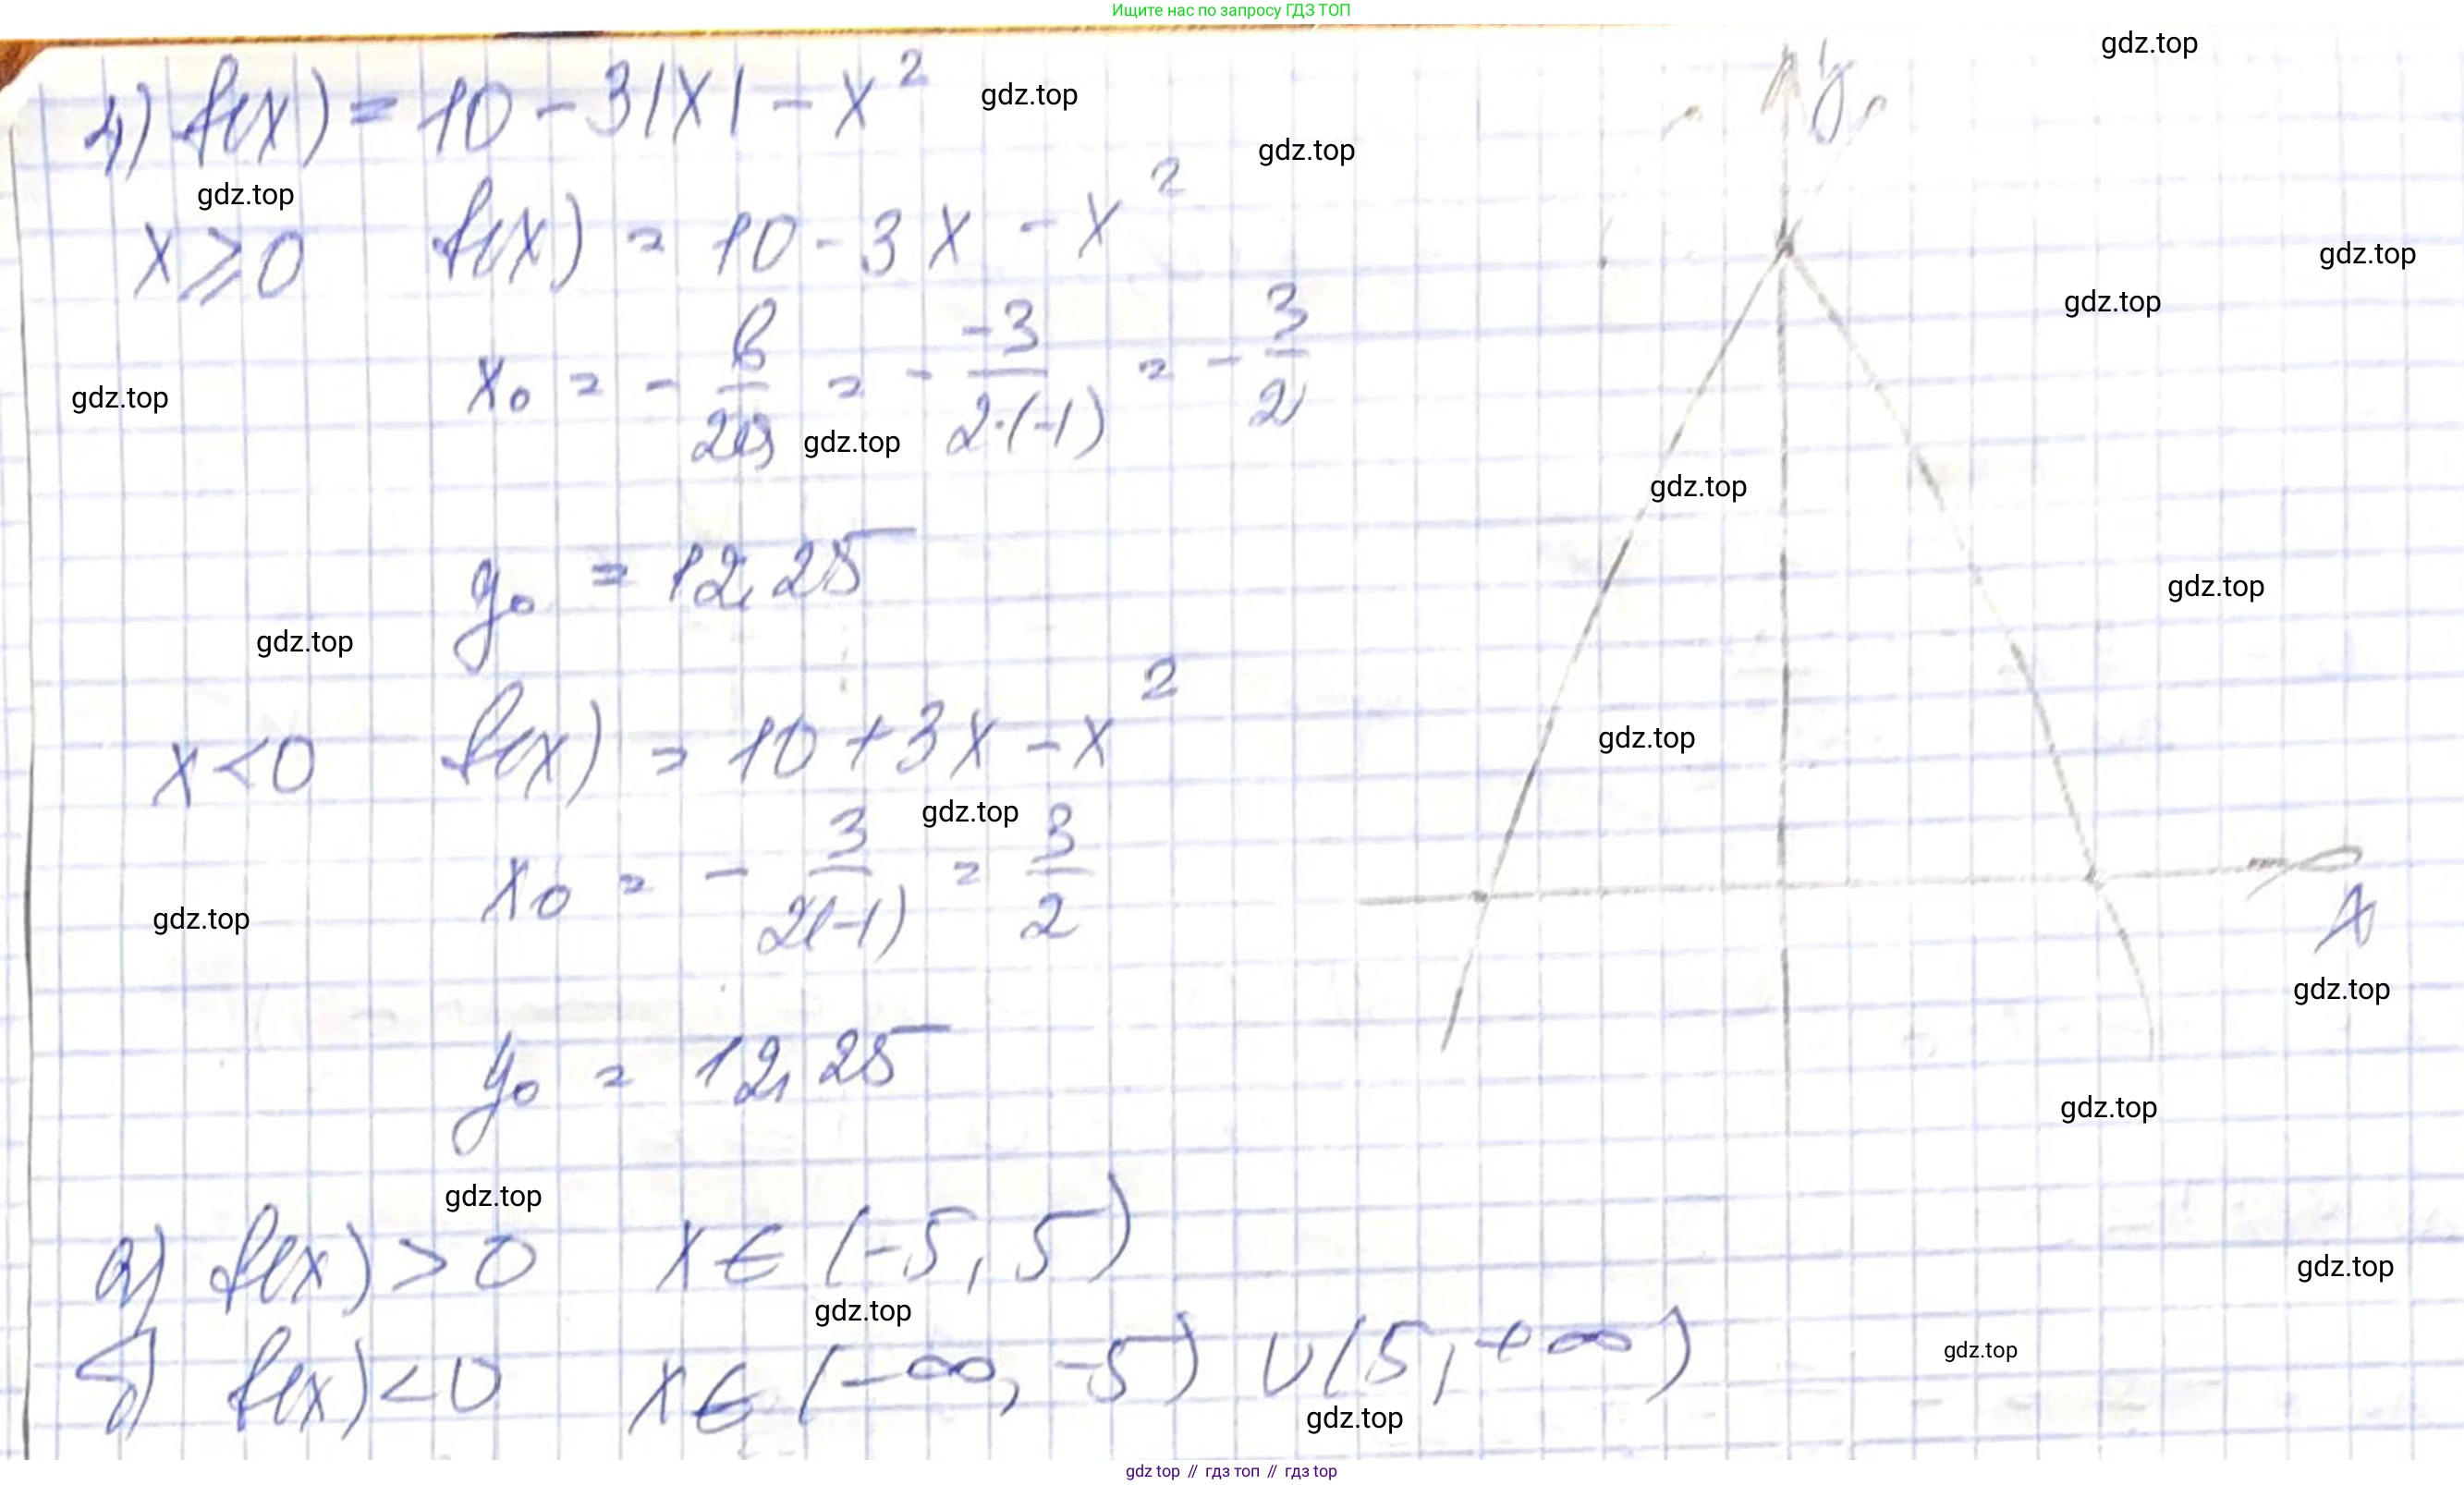 Ищите нас по запросу ГДЗ ТОП
gdz.top
4) f(x) = 10 - 3|x| - x²
gdz.top
gdz.top
gdz.top
x ⩾ 0 f(x) = 10 - 3x - x²
gdz.top
gdz.top
x₀ = - в/2a = - -3/2·(-1) = - 3/2
gdz.top
gdz.top
gdz.top
y₀ = 12,25
gdz.top
gdz.top
x < 0 f(x) = 10 + 3x - x²
gdz.top
gdz.top
x₀ = - 3/2(-1) = 3/2
gdz.top
gdz.top
y₀ = 12,25
gdz.top
gdz.top
а) f(x) > 0 x ∈ (-5, 5)
gdz.top
gdz.top
б) f(x) < 0 x ∈ (-∞, -5) ∪ (5, +∞)
gdz.top
gdz.top
y
x
gdz top // гдз топ // гдз top